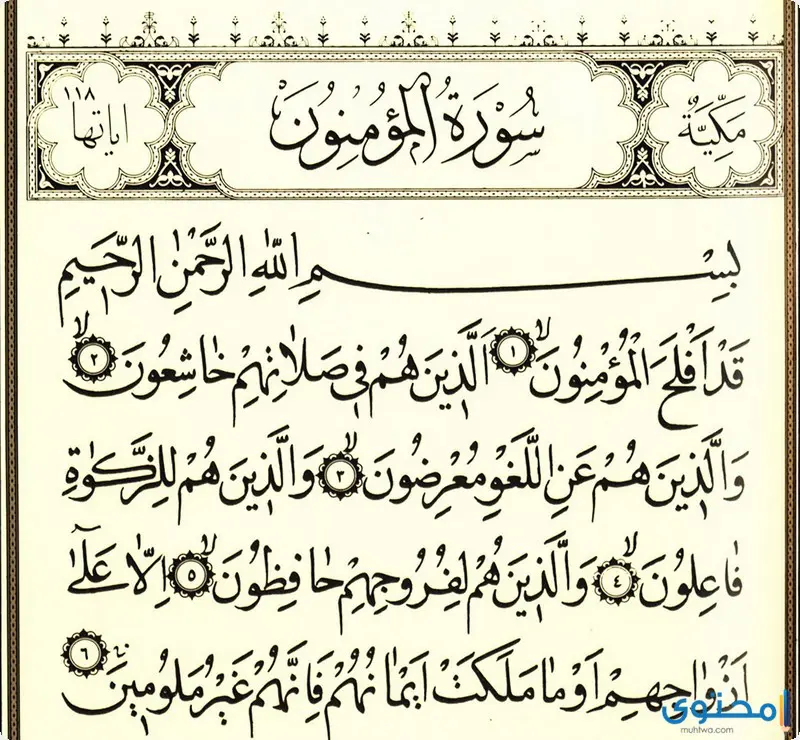 مَكِّيَّةٌ سُورَةُ الْمُؤْمِنُونَ اياتها ١١٨
بِسْمِ اللّٰهِ الرَّحْمٰنِ الرَّحِيمِ
قَدْ اَفْلَحَ الْمُؤْمِنُونَ ﴿١﴾ۙ اَلَّذِينَ هُمْ فِى صَلَاتِهِمْ خَاشِعُونَ ﴿٢﴾ۙ
وَالَّذِينَ هُمْ عَنِ اللَّغْوِ مُعْرِضُونَ ﴿٣﴾ۙ وَالَّذِينَ هُمْ لِلزَّكٰوةِ
فَاعِلُونَ ﴿٤﴾ۙ وَالَّذِينَ هُمْ لِفُرُوجِهِمْ حَافِظُونَ ﴿٥﴾ۙ اِلَّا عَلٰٓى
اَزْوَاجِهِمْ اَوْ مَا مَلَكَتْ اَيْمَانُهُمْ فَاِنَّهُمْ غَيْرُ مَلُومِينَ ﴿٦﴾ۚ
محتوى
muhtwa.com